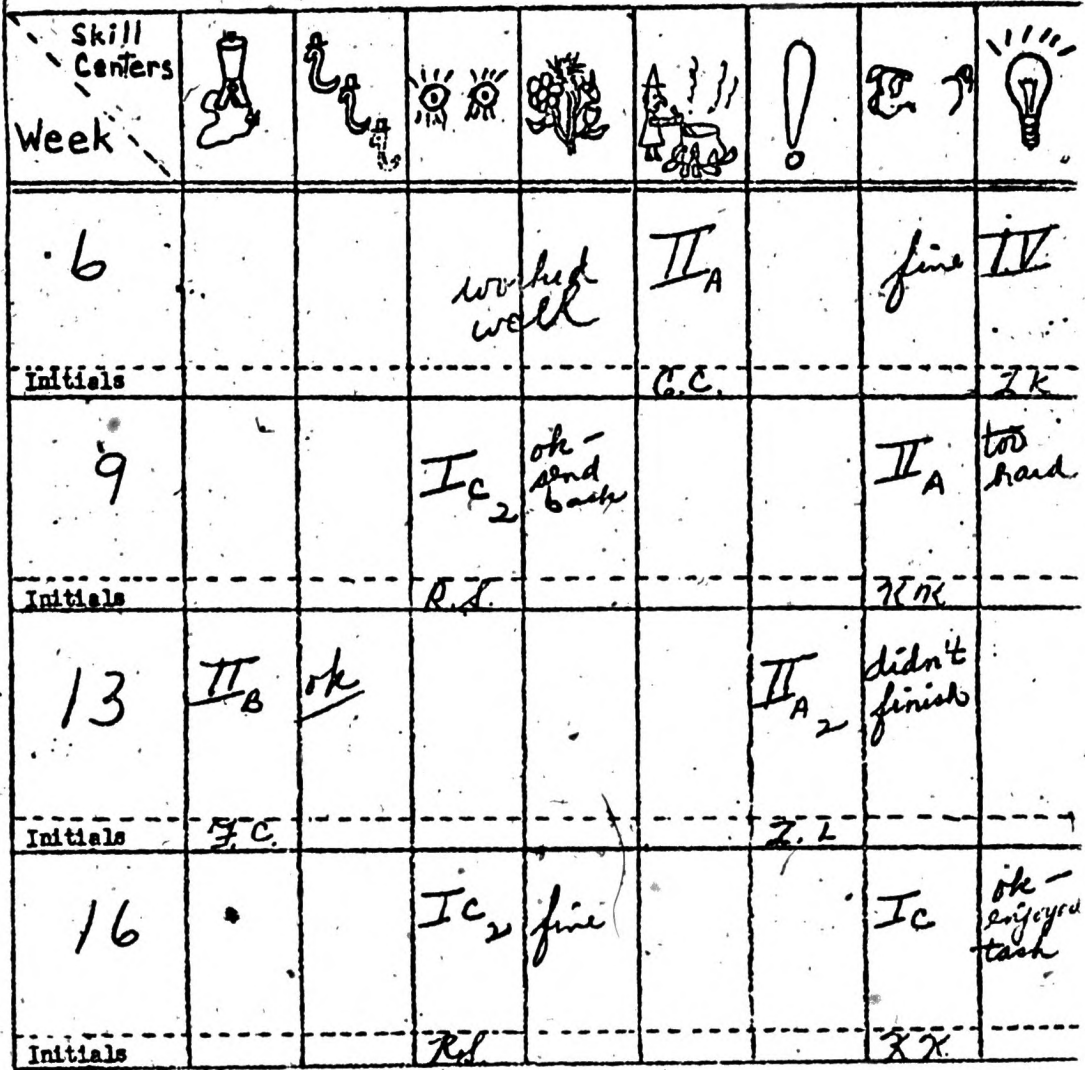 Skill
Centers
Week
6
worked
well
II A
fine
I.V.
Initials
C.C.
I.K
9
I C 2
ok -
send
back
II A
too
hard
Initials
R.S.
KK
13
II B
ok
II A 2
didn't
finish
Initials
F.C.
I.L
16
I C 2
fine
I C
ok -
enjoyed
task
Initials
R.S.
KK